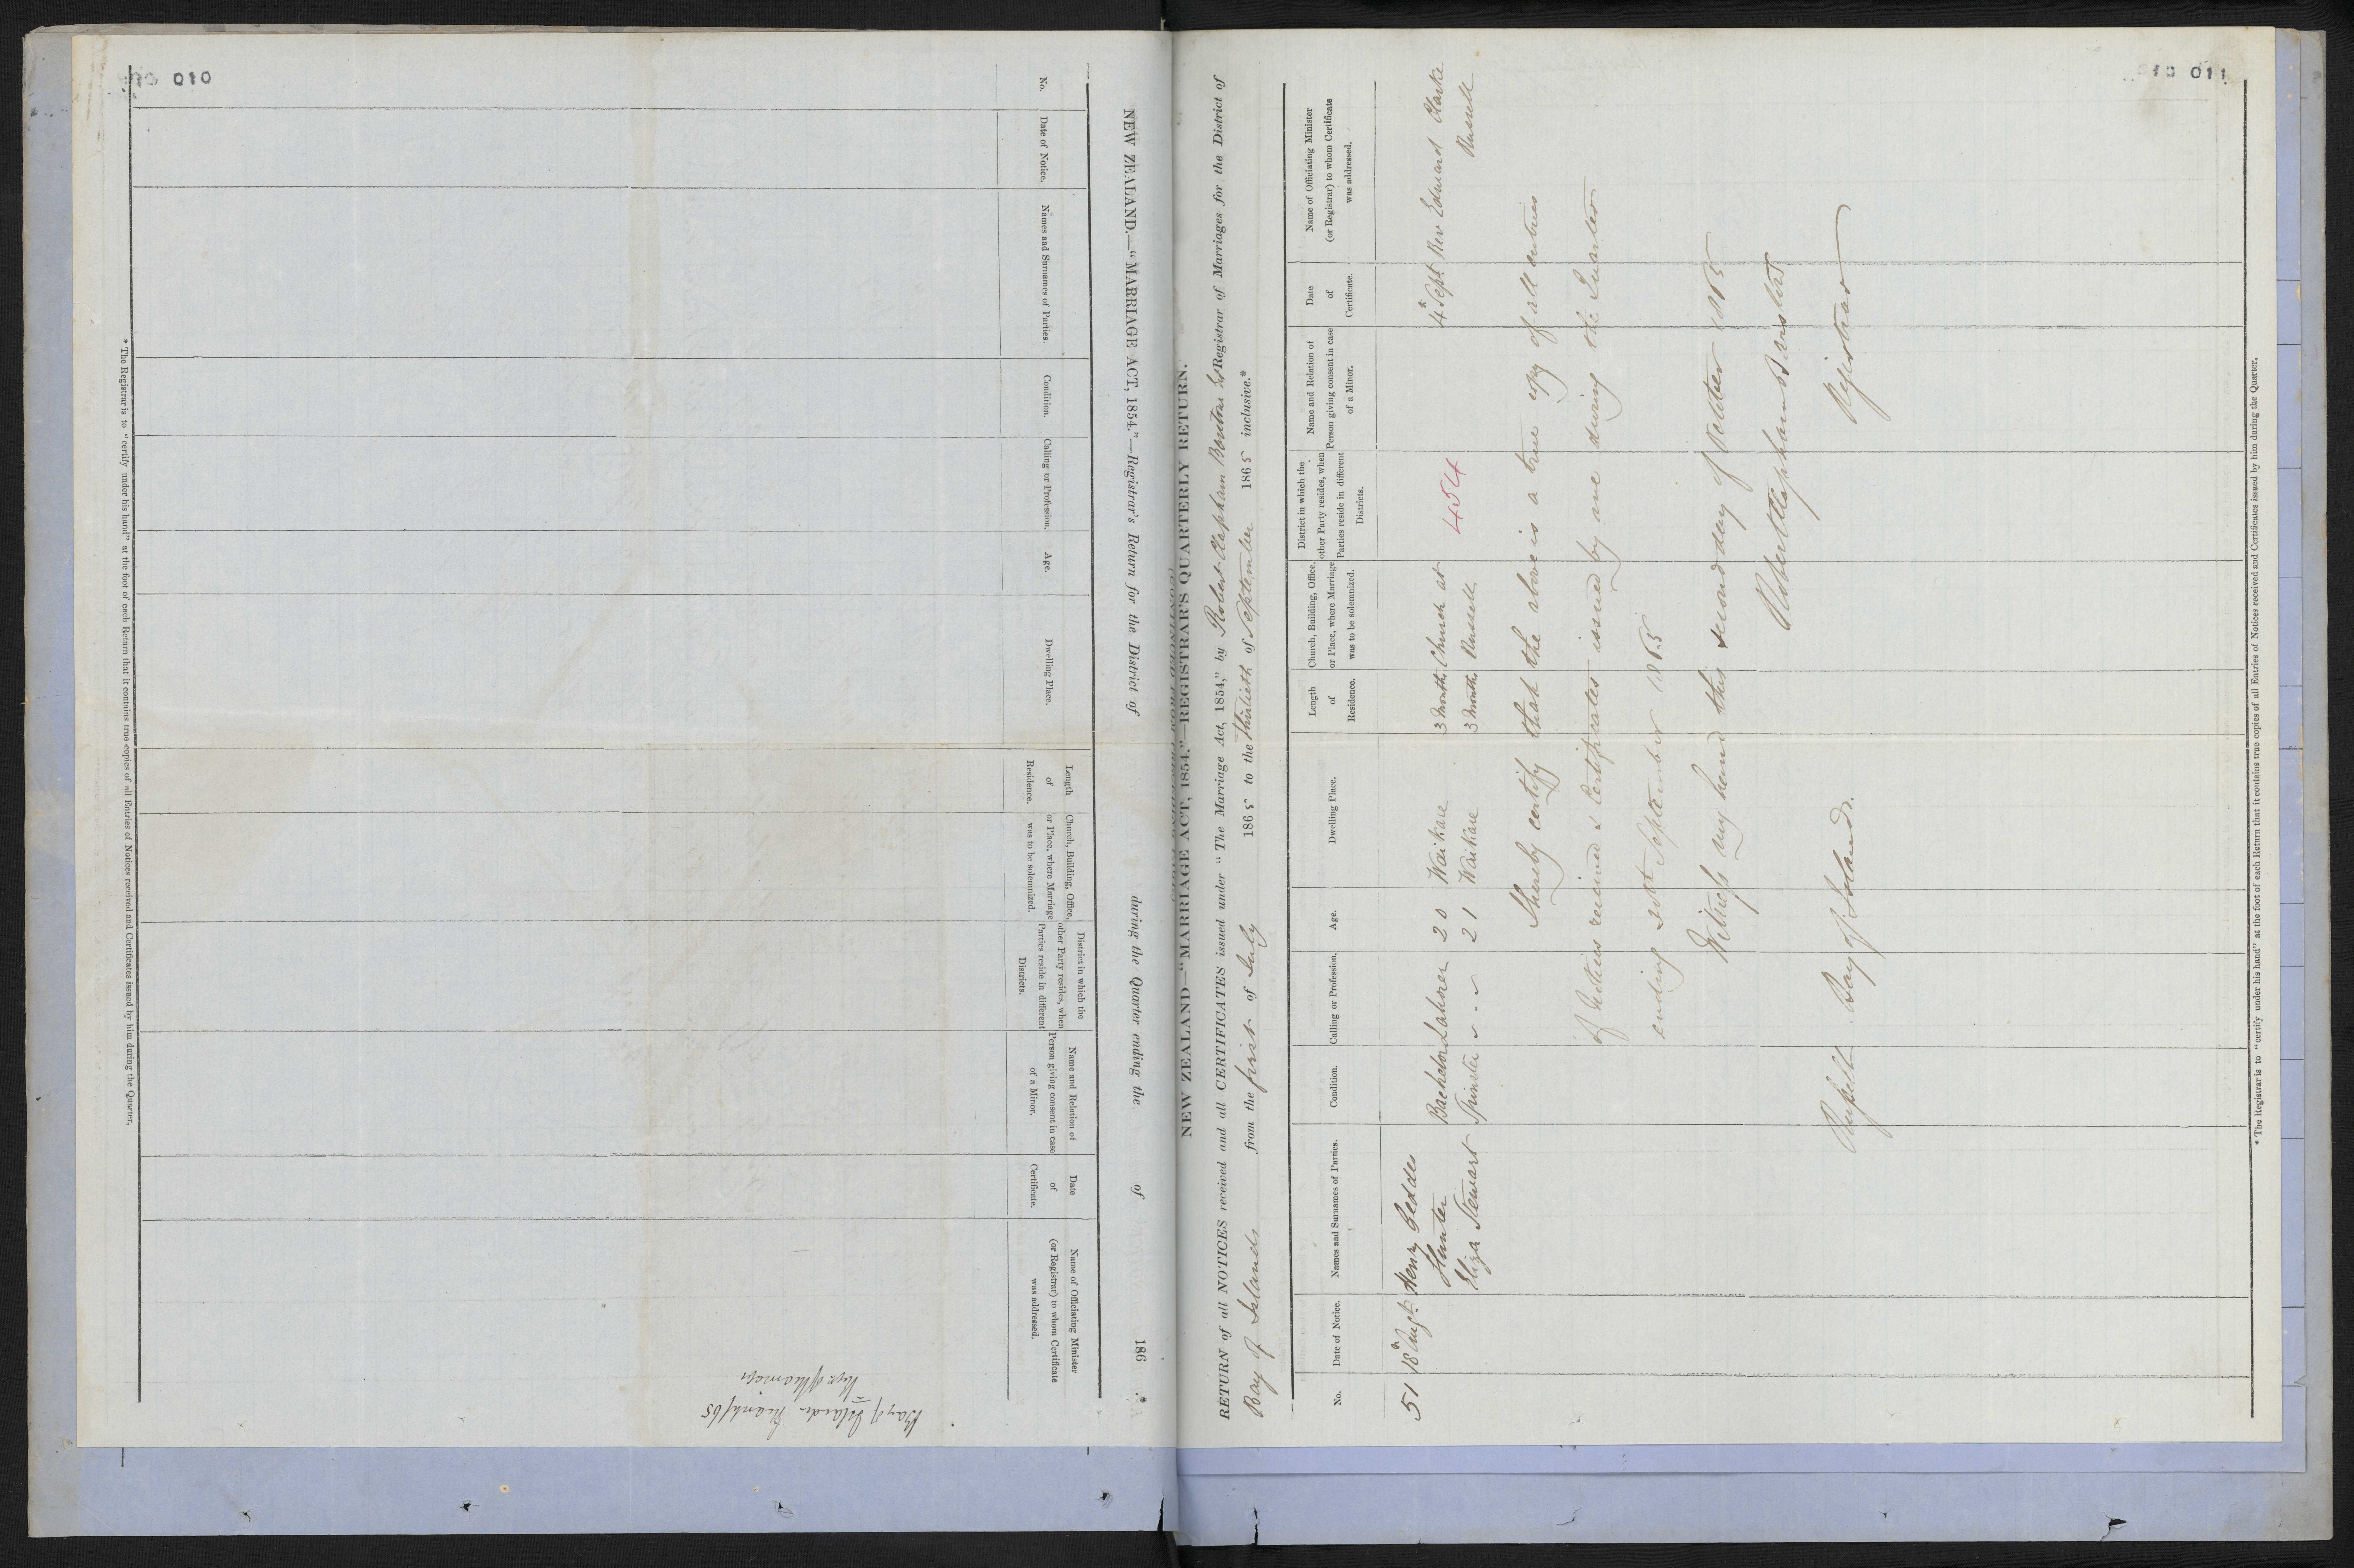 010
NEW ZEALAND.—"MARRIAGE ACT, 1854."—Registrar's Return for the District of during the Quarter ending the of 186 .*
No.
Date of Notice.
Names and Surnames of Parties.
Condition.
Calling or Profession.
Age.
Dwelling Place.
Length
of
Residence.
Church, Building, Office,
or Place, where Marriage
was to be solemnized.
District in which the
other Party resides, when
Parties reside in different
Districts.
Name and Relation of
Person giving consent in case
of a Minor.
Date
of
Certificate.
Name of Officiating Minister
(or Registrar) to whom Certificate
was addressed.
Bay of Islands
* The Registrar is to "certify under his hand" at the foot of each Return that it contains true copies of all Entries of Notices received and Certificates issued by him during the Quarter.
011
NEW ZEALAND—"MARRIAGE ACT, 1854."—REGISTRAR'S QUARTERLY RETURN.
RETURN of all NOTICES received and all CERTIFICATES issued under "The Marriage Act, 1854," by Robert Clapham Registrar of Marriages for the District of
Bay of Islands from the first of July 1865 to the thirtieth of September 1865 inclusive.*
No.
Date of Notice.
Names and Surnames of Parties.
Condition.
Calling or Profession.
Age.
Dwelling Place.
Length
of
Residence.
Church, Building, Office,
or Place, where Marriage
was to be solemnized.
District in which the
other Party resides, when
Parties reside in different
Districts.
Name and Relation of
Person giving consent in case
of a Minor.
Date
of
Certificate.
Name of Officiating Minister
(or Registrar) to whom Certificate
was addressed.
51 18th Augt. Henry Geddes
Hunter Bachelor Labourer 20 Waikare 3 month Church at 4th Sept Rev Edward Clarke
Eliza Stewart Spinster 21 Waikare 3 month Russell 454 Russell
I hereby certify that the above is a true copy of all entries
of Notices received & Certificates issued by me during the Quarter
ending 30th September 1865
Witness my hand this second day of October 1865
Robert Clapham
Registrar
Russell Bay of Islands.
* The Registrar is to "certify under his hand" at the foot of each Return that it contains true copies of all Entries of Notices received and Certificates issued by him during the Quarter.